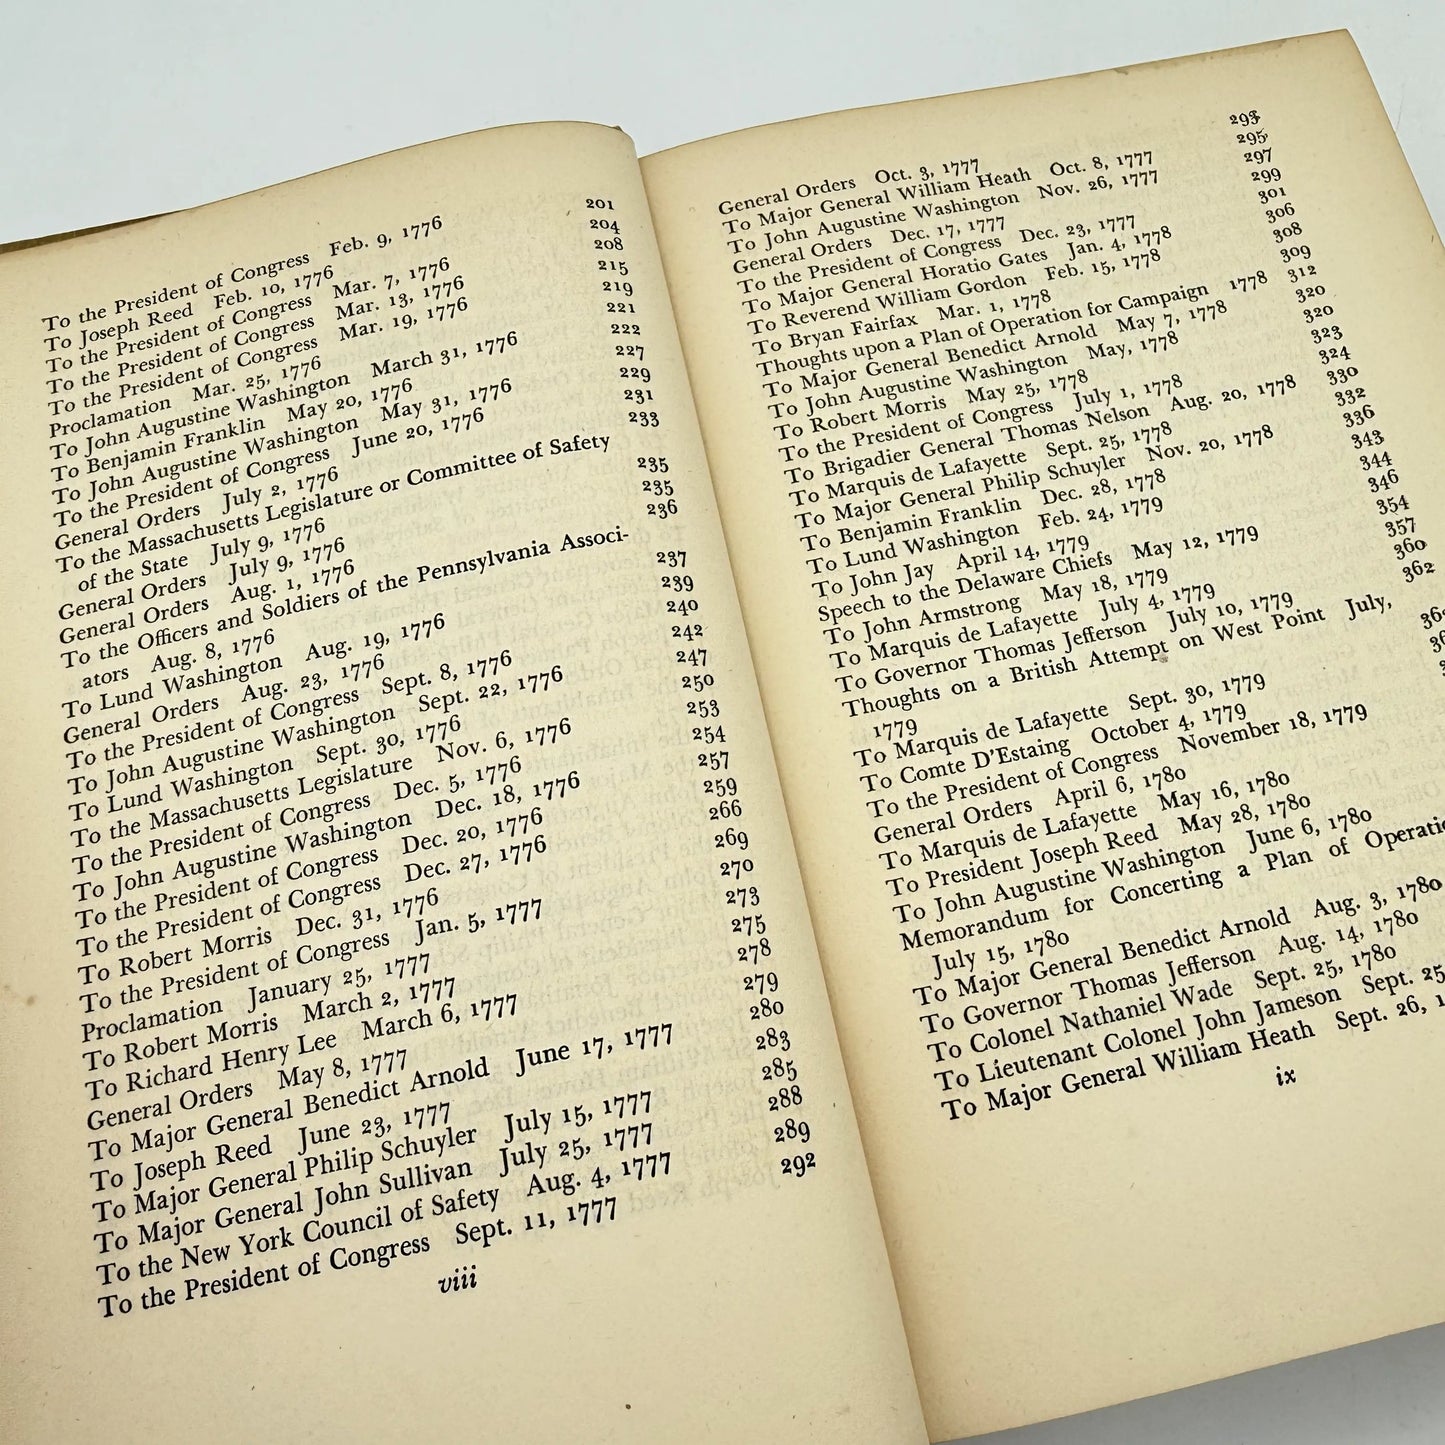 To the President of Congress Feb. 9, 1776 201
To Joseph Reed Feb. 10, 1776 204
To the President of Congress Mar. 7, 1776 208
To the President of Congress Mar. 13, 1776 215
To the President of Congress Mar. 19, 1776 219
Proclamation Mar. 25, 1776 221
To John Augustine Washington March 31, 1776 222
To Benjamin Franklin May 20, 1776 227
To John Augustine Washington May 31, 1776 229
To the President of Congress June 20, 1776 231
General Orders July 2, 1776 233
To the Massachusetts Legislature or Committee of Safety
of the State July 9, 1776 235
General Orders July 9, 1776 235
General Orders Aug. 1, 1776 236
To the Officers and Soldiers of the Pennsylvania Associ-
ators Aug. 8, 1776 237
To Lund Washington Aug. 19, 1776 239
General Orders Aug. 23, 1776 240
To the President of Congress Sept. 8, 1776 242
To John Augustine Washington Sept. 22, 1776 247
To Lund Washington Sept. 30, 1776 250
To the Massachusetts Legislature Nov. 6, 1776 253
To the President of Congress Dec. 5, 1776 254
To John Augustine Washington Dec. 18, 1776 257
To the President of Congress Dec. 20, 1776 259
To the President of Congress Dec. 27, 1776 266
To Robert Morris Dec. 31, 1776 269
To the President of Congress Jan. 5, 1777 270
Proclamation January 25, 1777 273
To Robert Morris March 2, 1777 275
To Richard Henry Lee March 6, 1777 278
General Orders May 8, 1777 279
To Major General Benedict Arnold June 17, 1777 280
To Joseph Reed June 23, 1777 283
To Major General Philip Schuyler July 15, 1777 285
To Major General John Sullivan July 25, 1777 288
To the New York Council of Safety Aug. 4, 1777 289
To the President of Congress Sept. 11, 1777 292
viii
General Orders Oct. 3, 1777 293
To Major General William Heath Oct. 8, 1777 295
To John Augustine Washington Nov. 26, 1777 297
General Orders Dec. 17, 1777 299
To the President of Congress Dec. 23, 1777 301
To Major General Horatio Gates Jan. 4, 1778 306
To Reverend William Gordon Feb. 15, 1778 308
To Bryan Fairfax Mar. 1, 1778 309
Thoughts upon a Plan of Operation for Campaign 1778 312
To Major General Benedict Arnold May 7, 1778 320
To John Augustine Washington May, 1778 320
To Robert Morris May 25, 1778 323
To the President of Congress July 1, 1778 324
To Brigadier General Thomas Nelson Aug. 20, 1778 330
To Marquis de Lafayette Sept. 25, 1778 332
To Major General Philip Schuyler Nov. 20, 1778 336
To Benjamin Franklin Dec. 28, 1778 343
To Lund Washington Feb. 24, 1779 344
To John Jay April 14, 1779 346
Speech to the Delaware Chiefs May 12, 1779 354
To John Armstrong May 18, 1779 357
To Marquis de Lafayette July 4, 1779 360
To Governor Thomas Jefferson July 10, 1779 362
Thoughts on a British Attempt on West Point July,
1779
To Marquis de Lafayette Sept. 30, 1779
To Comte D'Estaing October 4, 1779
To the President of Congress November 18, 1779
General Orders April 6, 1780
To Marquis de Lafayette May 16, 1780
To President Joseph Reed May 28, 1780
To John Augustine Washington June 6, 1780
Memorandum for Concerting a Plan of Operatio
July 15, 1780
To Major General Benedict Arnold Aug. 3, 1780
To Governor Thomas Jefferson Aug. 14, 1780
To Colonel Nathaniel Wade Sept. 25, 1780
To Lieutenant Colonel John Jameson Sept. 25
To Major General William Heath Sept. 26, 1
ix